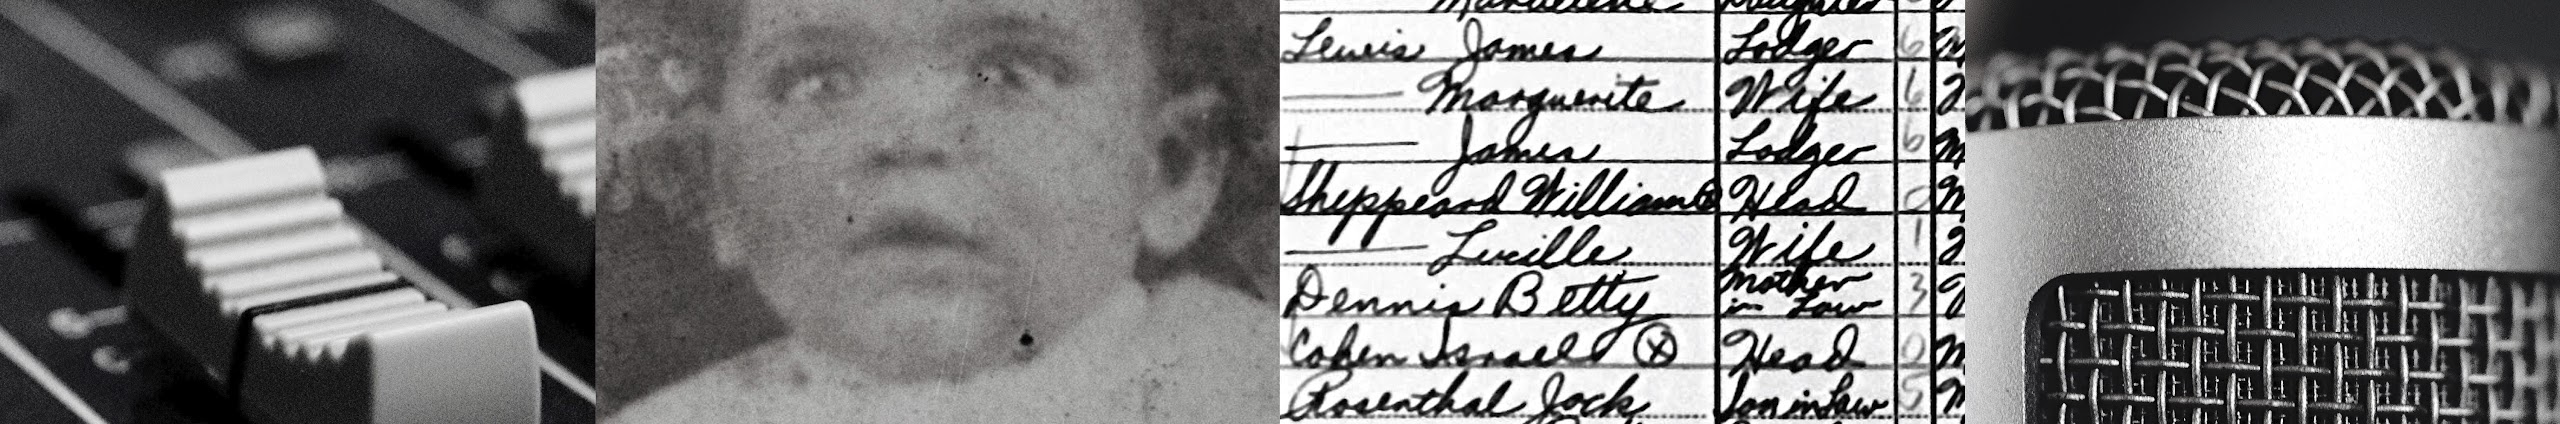 Madeleine Daughter
Lewis James Lodger 6 M
— Marguerite Wife 6
— James Lodger 6 M
Sheppeard William Ⓧ Head 0 M
— Lucille Wife 1
Dennis Betty Mother in Law 3
Cohen Israel Ⓧ Head 0 M
Rosenthal Jack Son in Law 5 M